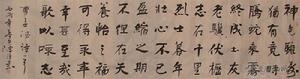 神龜雖壽
猶有竟時
騰蛇乘霧
終成土灰
老驥伏櫪
志在千里
烈士暮年
壯心不已
盈縮之期
不但在天
養怡之福
可得永年
幸甚至哉
歌以詠志